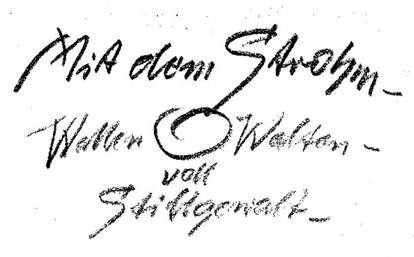 Mit dem Strohm–
Wallen O Walten–
voll
Stillgewalt–